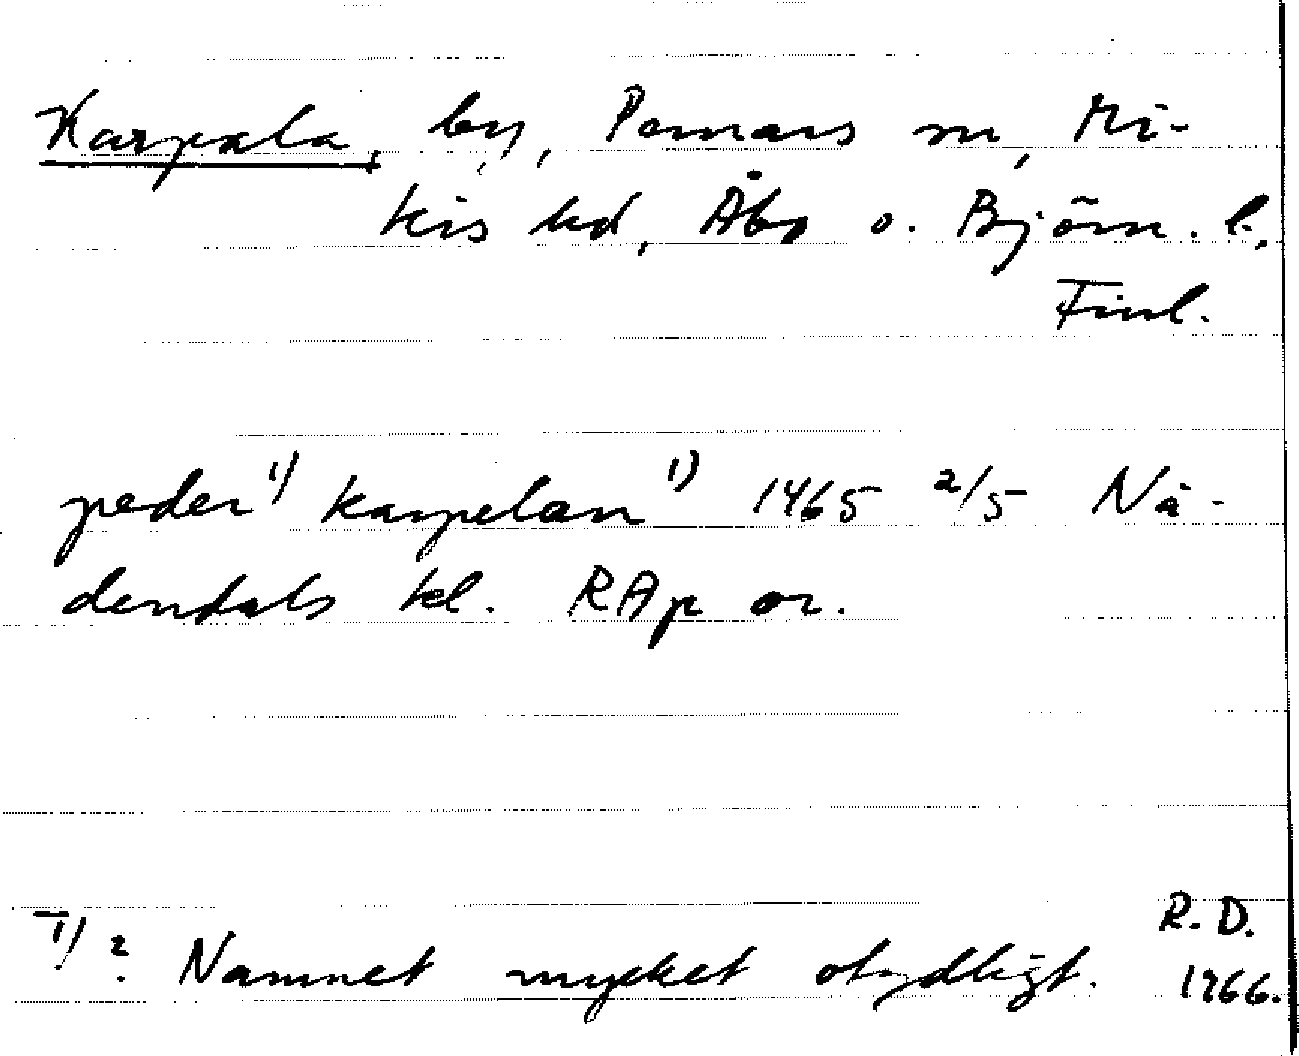 Karpala, by, Pemars sn, Pi-
kis hd, Åbo o. Björn. l.,
Finl.
peder 1) karpelan 1) 1465 2/5 Nå-
dendals kl. RAp or.
1) ? Namnet mycket otydligt.
R. D.
1966.